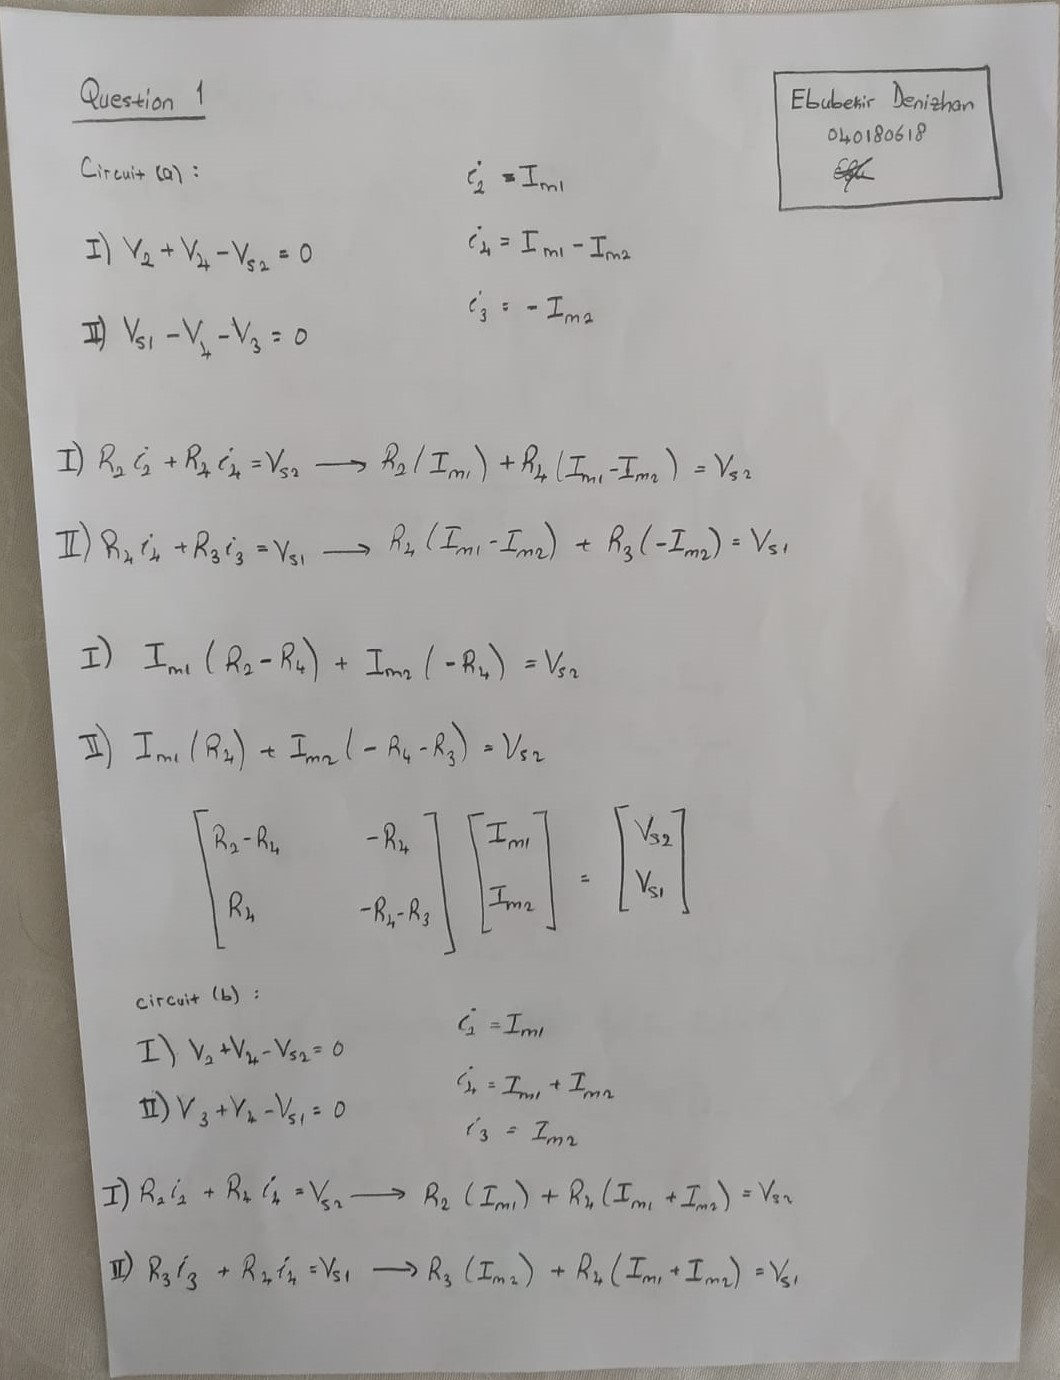 Question 1
Ebubekir Denizhan
040180618
Circuit (a) :
i₂ = Iₘ₁
I) V₂ + V₄ - Vₛ₂ = 0
i₄ = Iₘ₁ - Iₘ₂
i₃ = - Iₘ₂
II) Vₛ₁ - V₄ - V₃ = 0
I) R₂ i₂ + R₄ i₄ = Vₛ₂ → R₂ (Iₘ₁) + R₄ (Iₘ₁ - Iₘ₂) = Vₛ₂
II) R₄ i₄ + R₃ i₃ = Vₛ₁ → R₄ (Iₘ₁ - Iₘ₂) + R₃ (-Iₘ₂) = Vₛ₁
I) Iₘ₁ (R₂ - R₄) + Iₘ₂ (-R₄) = Vₛ₂
II) Iₘ₁ (R₄) + Iₘ₂ (- R₄ - R₃) = Vₛ₂
[R₂ - R₄ -R₄] [Iₘ₁] = [Vₛ₂]
[R₄ -R₄ - R₃] [Iₘ₂] [Vₛ₁]
circuit (b) :
i₂ = Iₘ₁
I) V₂ + V₄ - Vₛ₂ = 0
i₄ = Iₘ₁ + Iₘ₂
II) V₃ + V₄ - Vₛ₁ = 0
i₃ = Iₘ₂
I) R₂ i₂ + R₄ i₄ = Vₛ₂ → R₂ (Iₘ₁) + R₄ (Iₘ₁ + Iₘ₂) = Vₛ₂
II) R₃ i₃ + R₄ i₄ = Vₛ₁ → R₃ (Iₘ₂) + R₄ (Iₘ₁ + Iₘ₂) = Vₛ₁